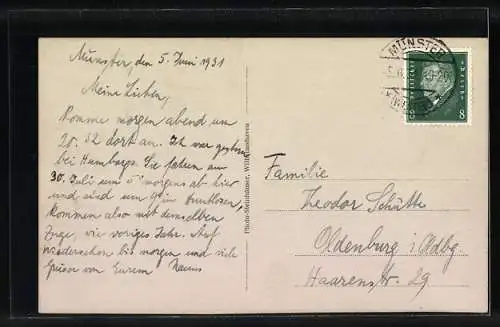 Münster, den 5. Juni 1931
Meine Lieben,
Komme morgen abend um
20.32 dort an. Ich war gestern
bei Hamborgs. Sie fahren am
30. Juli um 5 morgens ab hier
und sind um 9 in
kommen also mit demselben
Zuge, wie voriges Jahr. Auf
wiederschon bis morgen und viele
Grüsse von Eurem
Photo-Steinhäuser, Wilhelmshaven
MÜNSTER
8
Familie
Theodor Schütte
Oldenburg i. Oldbg.
Haarenstr. 29